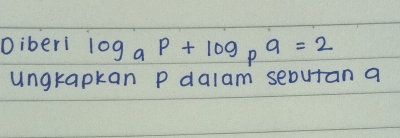 Diberi log_a P + log_p a = 2
Ungkapkan P dalam sebutan a